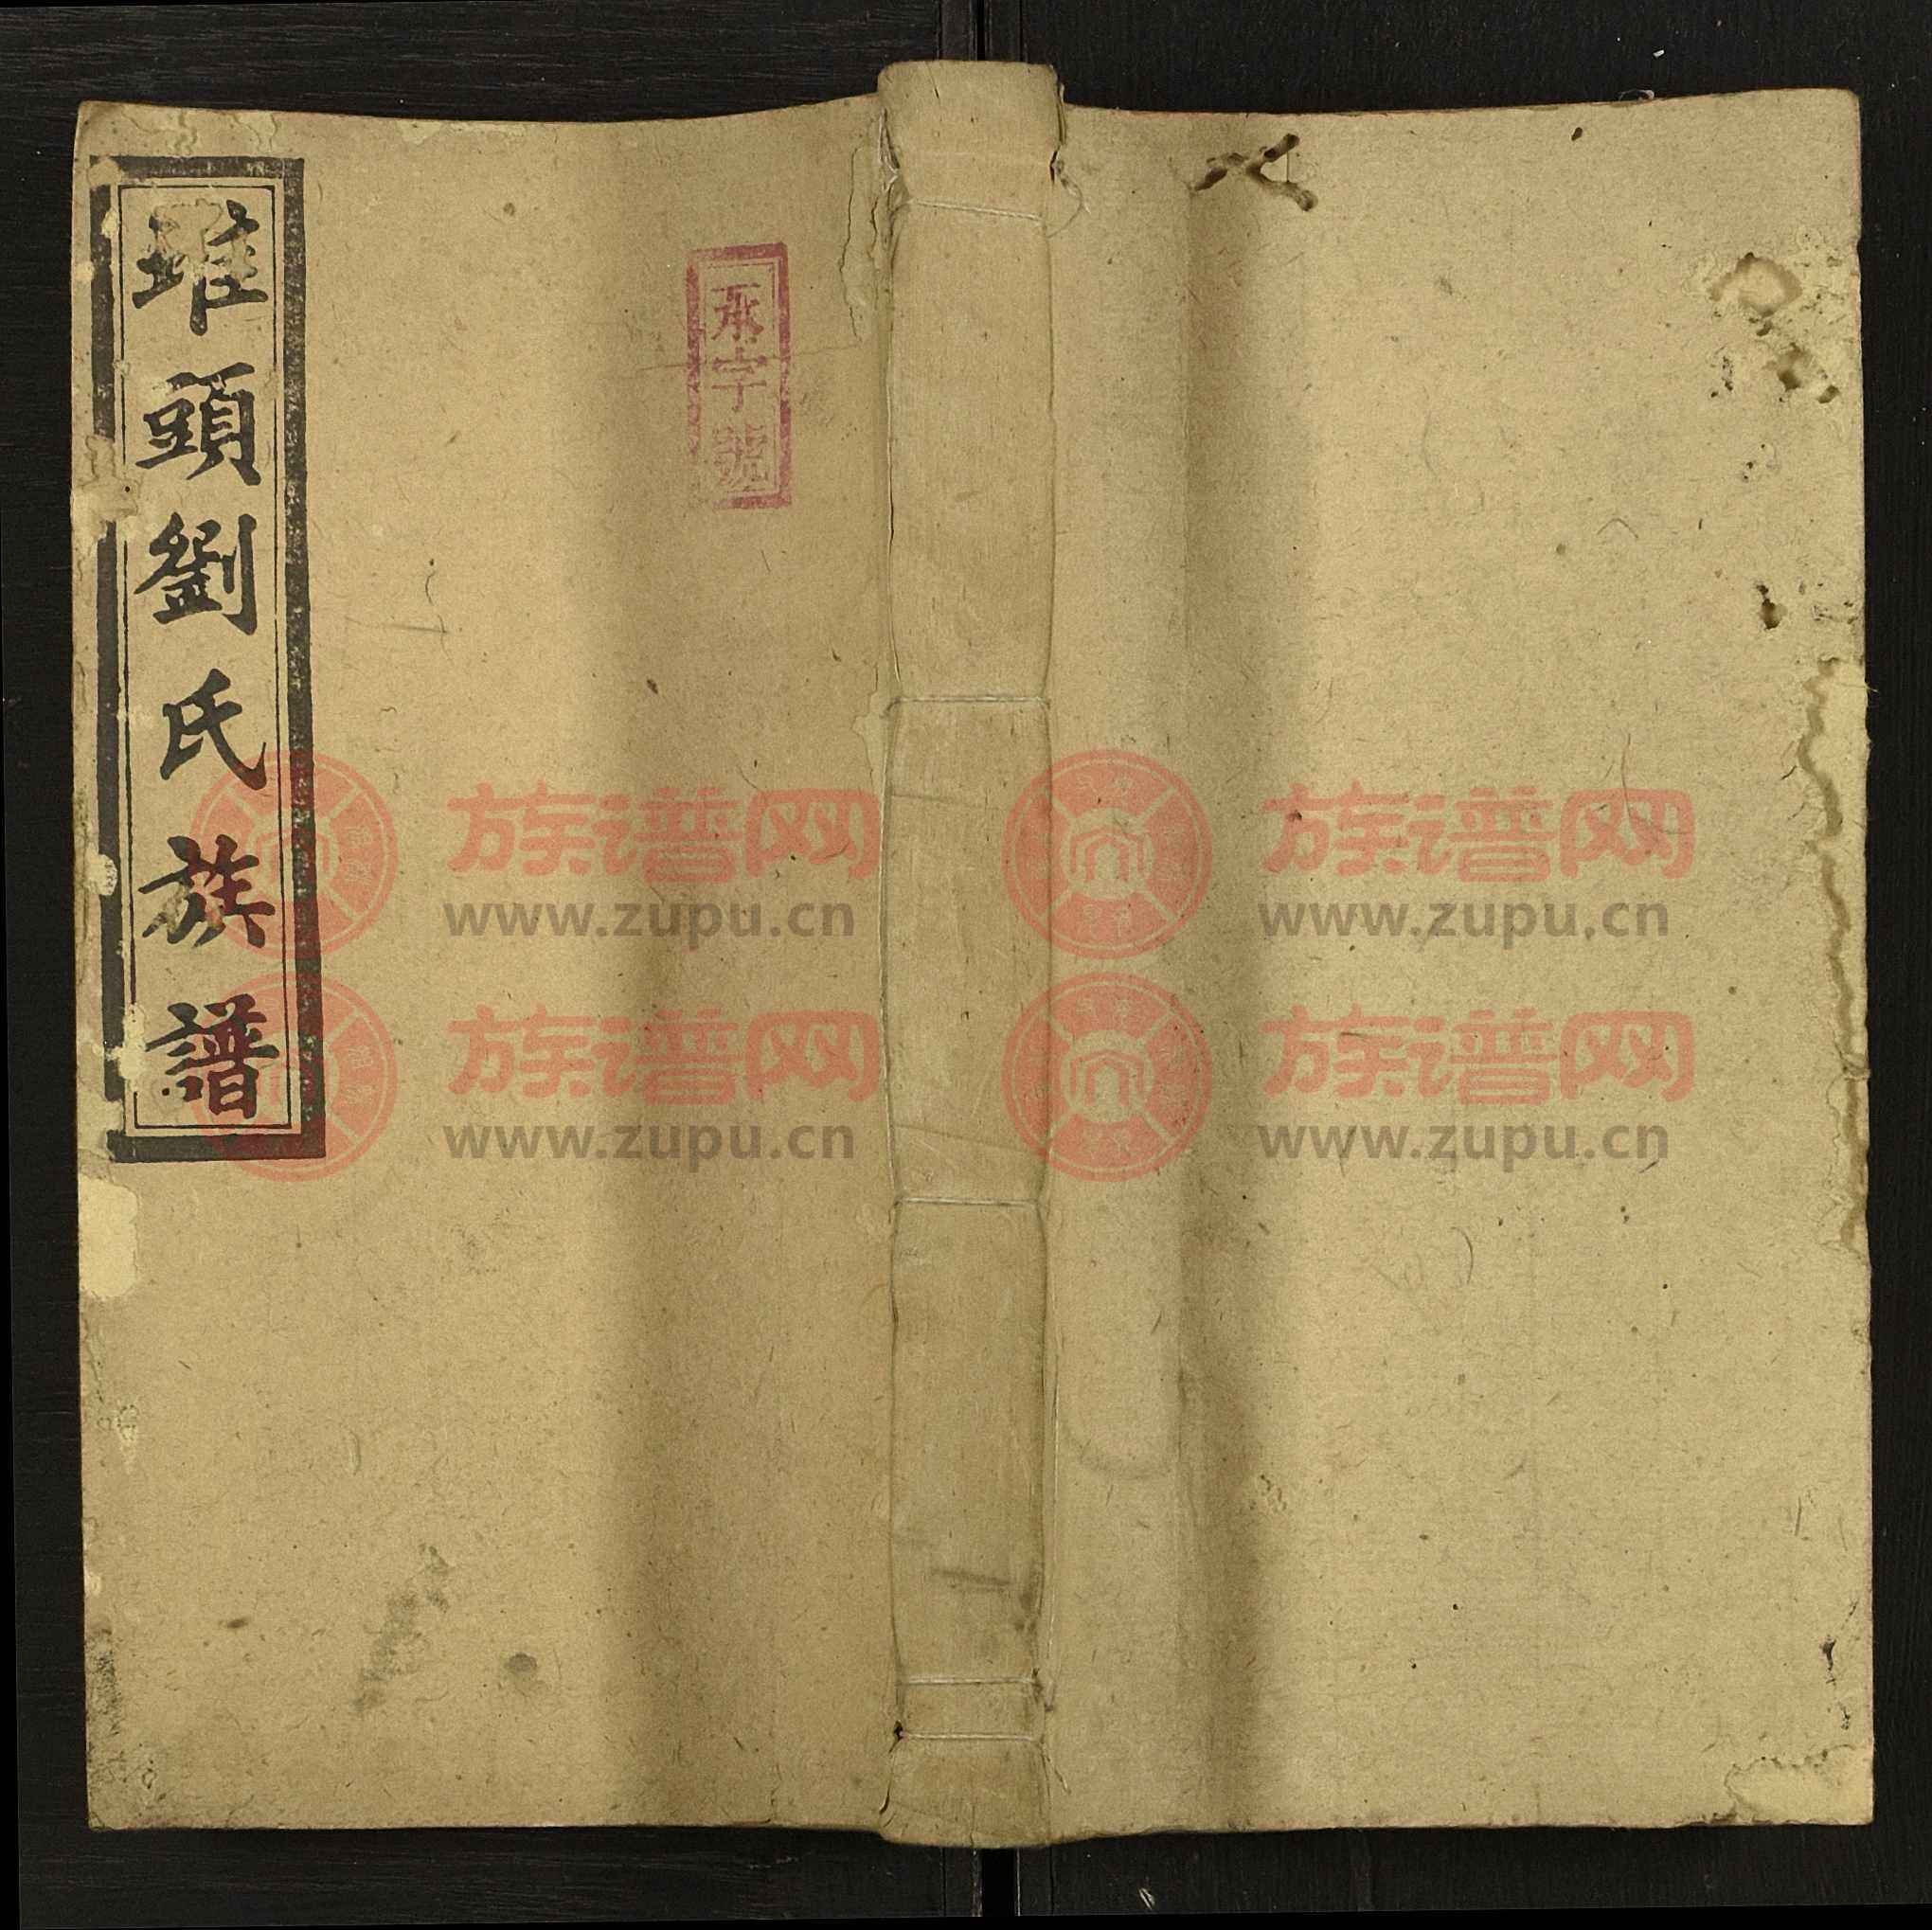 堆頭劉氏族譜
承字號
族谱网
www.zupu.cn
族谱网
www.zupu.cn
族谱网
www.zupu.cn
族谱网
www.zupu.cn